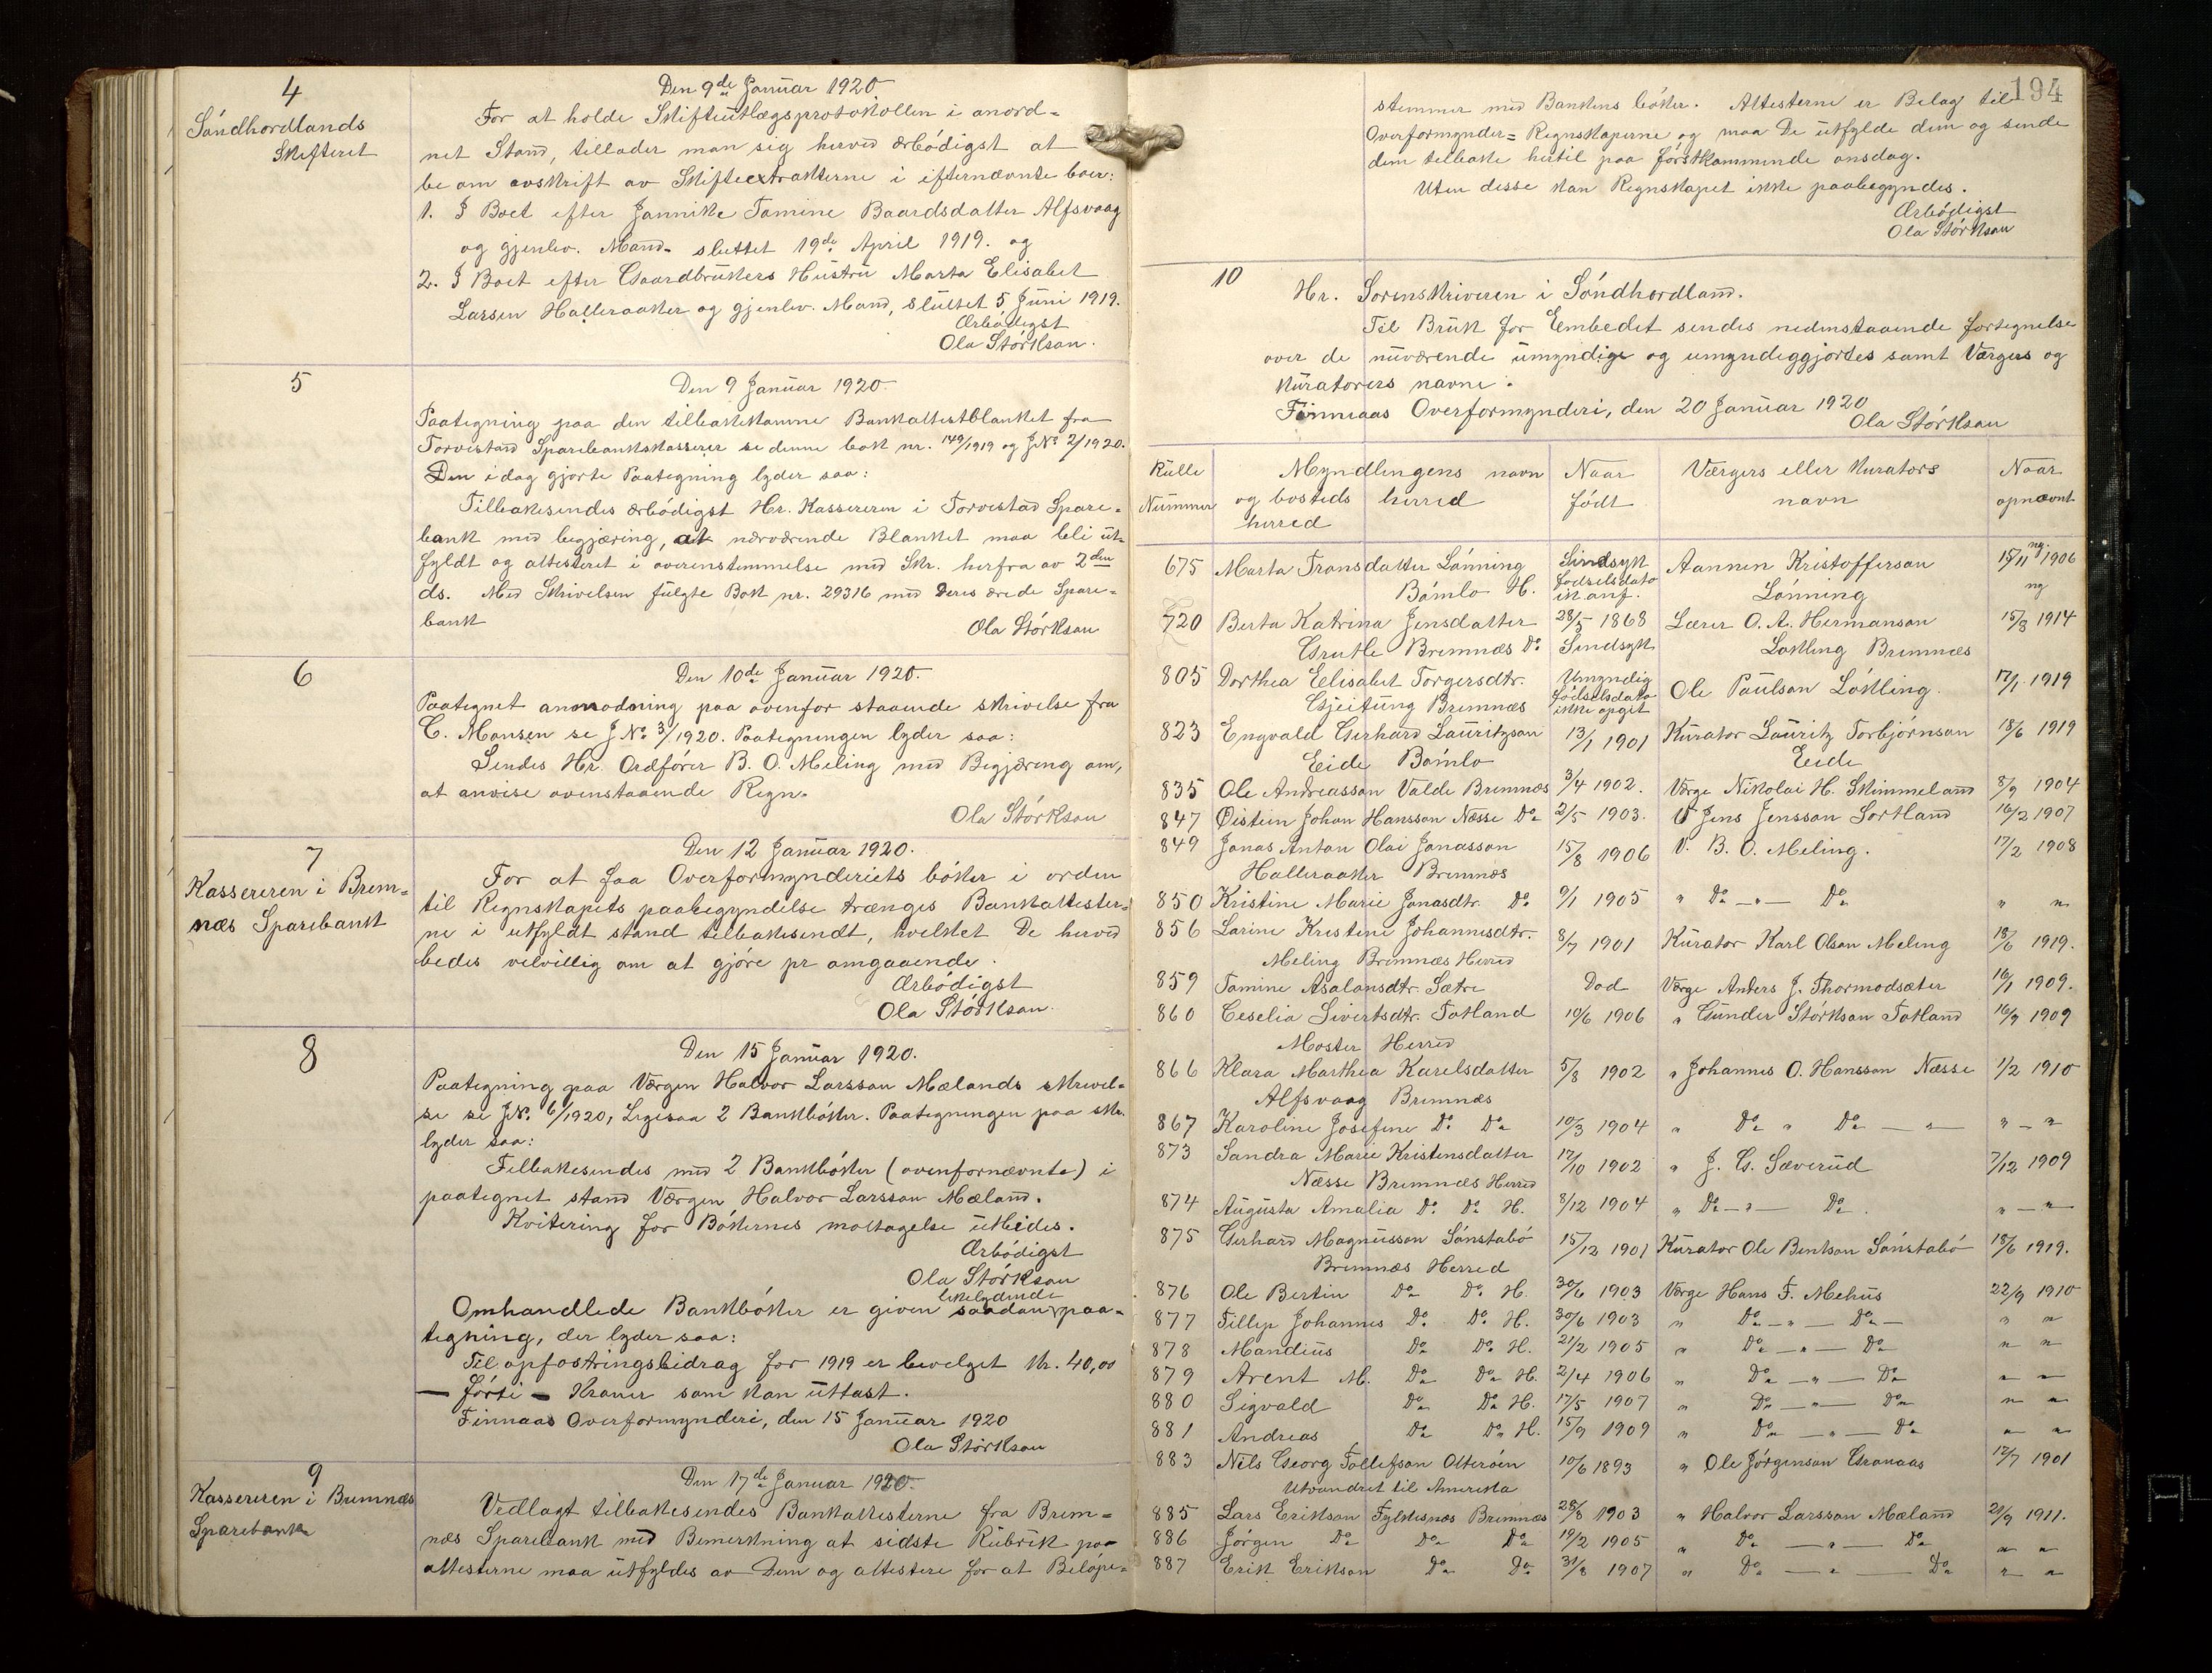 4
Söndhordlands
Skifteret
Den 9de Januar 1920
For at holde Skifteutlægsprotokollen i anord=
net Stand, tillader man sig herved ærbödigst at
be om avskrift av Skifteextrakterne i efternævnte boer:
1. I Boet efter Jannike Tamine Baardsdatter Alfsvaag
og gjenlev. Mand. sluttet 19de April 1919. og
2. I Boet efter Gaardbrukers Hustru Marta Elisabet
Larsen Halleraaker og gjenlev. Mand, sluttet 5 Juni 1919.
Ærbödigst
Ola Störkson.
5
Den 9 Januar 1920.
Paategning paa den tilbakekomne Bankattestblanket fra
Torvestad Sparebankskasserer se denne bok nr. 149/1919 og JNo 2/1920.
Den idag gjorte Paategning lyder saa:
Tilbakesendes ærbödigst Hr. Kassereren i Torvestad Spare=
bank med begjæring, at nærværende Blanket maa bli ut=
fyldt og attesteret i overenstemmelse med Skr. herfra av 2den
ds. Med Skrivelsen fulgte Bok nr. 29316 med Deres ærede Spare=
bank
Ola Störkson
6
Den 10de Januar 1920.
Paategnet anmodning paa ovenfor staaende skrivelse fra
C. Monsen se JNo 3/1920. Paategningen lyder saa:
Sendes Hr. Ordförer B. O. Meling med Begjæring om,
at anvise ovenstaaende Regn.
Ola Störkson
7
Kassereren i Brem=
næs Sparebank
Den 12 Januar 1920.
For at faa Overformynderiets böker i orden
til Regnskapets paabegyndelse trænges Bankattester=
ne i utfyldt stand tilbakesendt, hvilket De herved
bedes velvillig om at gjöre pr omgaaende.
Ærbödigst
Ola Störkson.
8
Den 15 Januar 1920.
Paategning paa Værgen Halvor Larsson Mælands skrivel=
se se JNo. 6/1920, Ligesaa 2 Bankböker. Paategningen paa skr.
lyder saa:
Tilbakesendes med 2 Bankböker (ovenfornævnte) i
paategnet stand Værgen Halvor Larsson Mæland.
Kvitering for Bökernes mottagelse utbedes.
Ærbödigst
Ola Störkson
likelydende
Omhandlede Bankböker er given saadan paa=
tegning, der lyder saa:
Til opfostringsbidrag for 1919 er bevelget Kr. 40,00
— förti — Kroner som kan uttast.
Finnaas Overformynderi, den 15 Januar 1920
Ola Störkson
9
Kassereren i Bremnæs
Sparebank
Den 17de Januar 1920.
Vedlagt tilbakesendes Bankattesterne fra Brem=
næs Sparebank med Bemerkning at sidste Rubrik paa
attesterne maa utfyldes av Dem og attestere for at Belöpe=
194
stemmer med Bankens böker. Attesterne er Belag til
Overformynder= Regnskaperne og maa De utfylde dem og sende
dem tilbake hertil paa förstkommende onsdag.
Uten disse kan Regnskapet ikke paabegyndes.
Ærbödigst
Ola Störkson
10
Hr. Sorenskriveren i Söndhordland.
Til Bruk for Embedet sendes nedenstaaende fortegnelse
over de nuværende umyndige og umyndeggjortes samt Værgers og
Kuratorers navne.
Finnaas Overformynderi, den 20 Januar 1920
Ola Störkson
Rulle Nummer Myndlingens navn og bosteds herred herred Naar födt Værgers eller Kurators navn Naar opnævnt
675 Marta Transdatter Lönning Sindsyk Aannen Kristofferson 15/11 ny. 1906
Bömlo H. födselsdato ik anf. Lönning ny
720 Berta Katrina Jensdatter 28/5 1868 Lærer O. A. Hermanson 15/3 1914
Grutle Bremnæs Do Sindsyk Lökling Bremnæs
805 Dorthea Elisabet Torgersdtr. Umyndig Ole Paulson Lökling. 17/1 1919
Gjeitung Bremnæs födselsdato ikke opgit
823 Engvald Gerhard Lauritzson 13/1 1901 Kurator Lauritz Torbjörnson 18/6 1919
Eide Bömlo Eide
835 Ole Andreasson Valde Bremnæs 3/4 1902. Værge Nikolai H. Skimmeland 8/9 1904
847 Öistein Johan Hansson Næsse Do 2/5 1903. V Jens Jensson Sortland 16/2 1907
849 Jonas Antan Olai Jonasson 15/8 1906 V. B. O. Meling. 17/2 1908
Halleraaker Bremnæs
850 Kristine Marie Jonasdtr. Do 9/1 1905 " Do — " — Do " "
856 Larine Kristine Johannisdtr. 8/7 1901 Kurator Karl Olson Meling 18/6 1919.
Meling Bremnæs Herred
859 Tamine Asalonsdtr. Sætre Död Værge Anders J. Thormodsæter 16/1 1909.
860 Ceselia Sivertsdtr. Totland 10/6 1906 " Gunder Störkson Totland 16/9 1909
Moster Herred
866 Klara Marthea Karelsdatter 5/8 1902 " Johannes O. Hansson Næsse 1/2 1910
Alfsvaag Bremnæs
867 Karoline Josefine Do Do 10/3 1904 " Do " Do — " — " — "
873 Sandra Marie Kristensdatter 12/10 1902 " J. G. Sæverud 7/12 1909
Næsse Bremnæs Herred
874 Augusta Amalia Do Do H. 8/12 1904 " Do — " — Do. " — "
875 Gerhard Magnusson Sönstabö 15/12 1901 Kurator Ole Bentson Sönstabö 18/6 1919.
Bremnæs Herred
876 Ole Bertin Do Do H. 30/6 1903 Værge Hans F. Mehus 22/9 1910
877 Tillep Johannes Do Do H. 30/6 1903 " Do — " — Do — " "
878 Mandius Do Do H. 21/2 1905 " Do — " — Do " "
879 Arent M. Do Do H. 2/4 1906 " Do — " — Do " "
880 Sigvald Do Do H. 17/5 1907 " Do — " — Do " "
881 Andreas Do Do H. 15/9 1909 " Do — " — Do " "
883 Nils Georg Tollefson Otteröen 10/6 1893 " Ole Jörgenson Granaas 12/7 1901
Utvandret til Amerika
885 Lars Erikson Fylkesnæs Bremnæs 28/8 1903 " Halvor Larsson Mæland 21/9 1911.
886 Jörgen Do Do Do 19/2 1905 " Do — " — Do " "
887 Erik Erikson Do Do 31/8 1907 " Do — " — Do " "